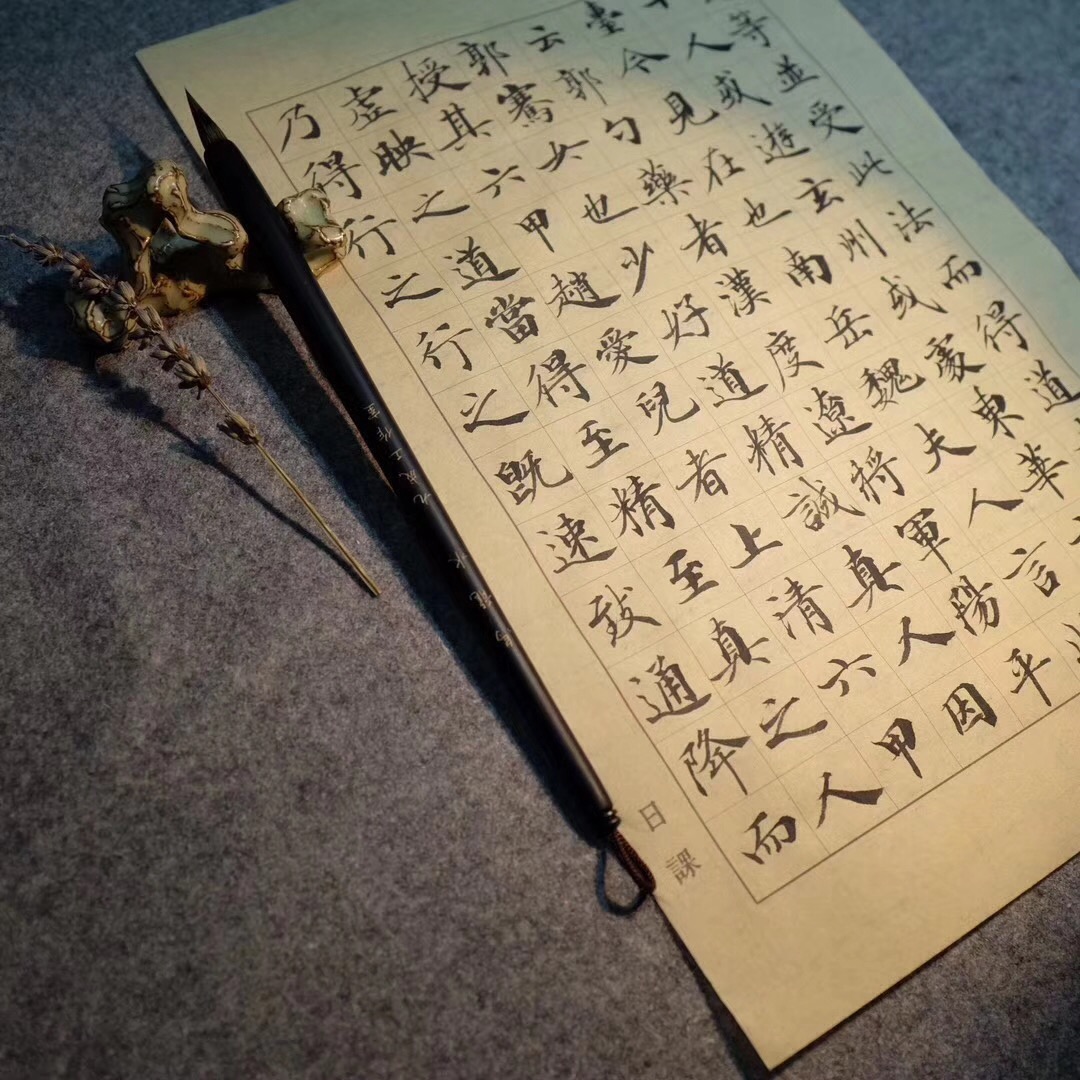 等並受此法而得道
人或遊玄州或處東華
臺令見在也南岳魏夫人言
云郭勺藥者漢度遼將軍陽平
郭騫女也少好道精誠真人因
授其六甲趙愛兒者上清六甲
虛映之道當得至精至真之人
乃得行之行之既速致通降而
日課